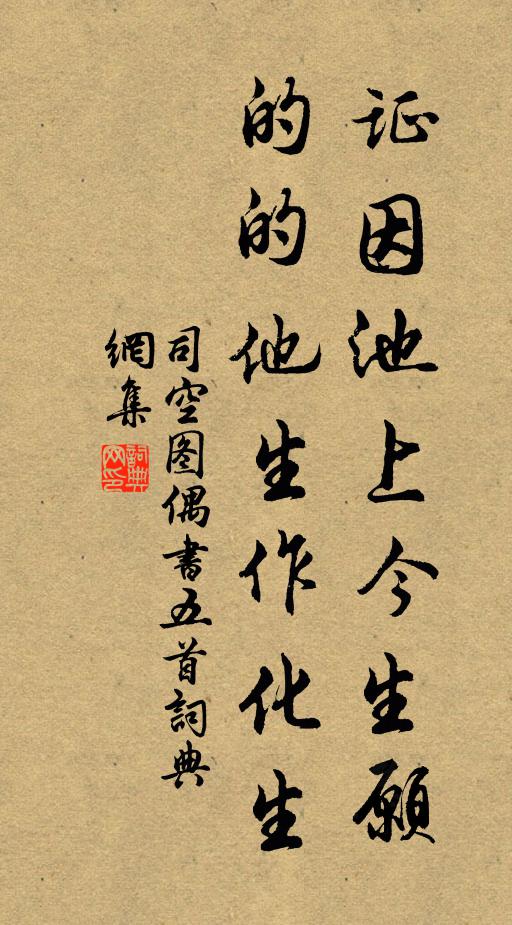 证因池上今生願
的的他生作化生
司空图偶書五首詞典
網集
詞典
网印